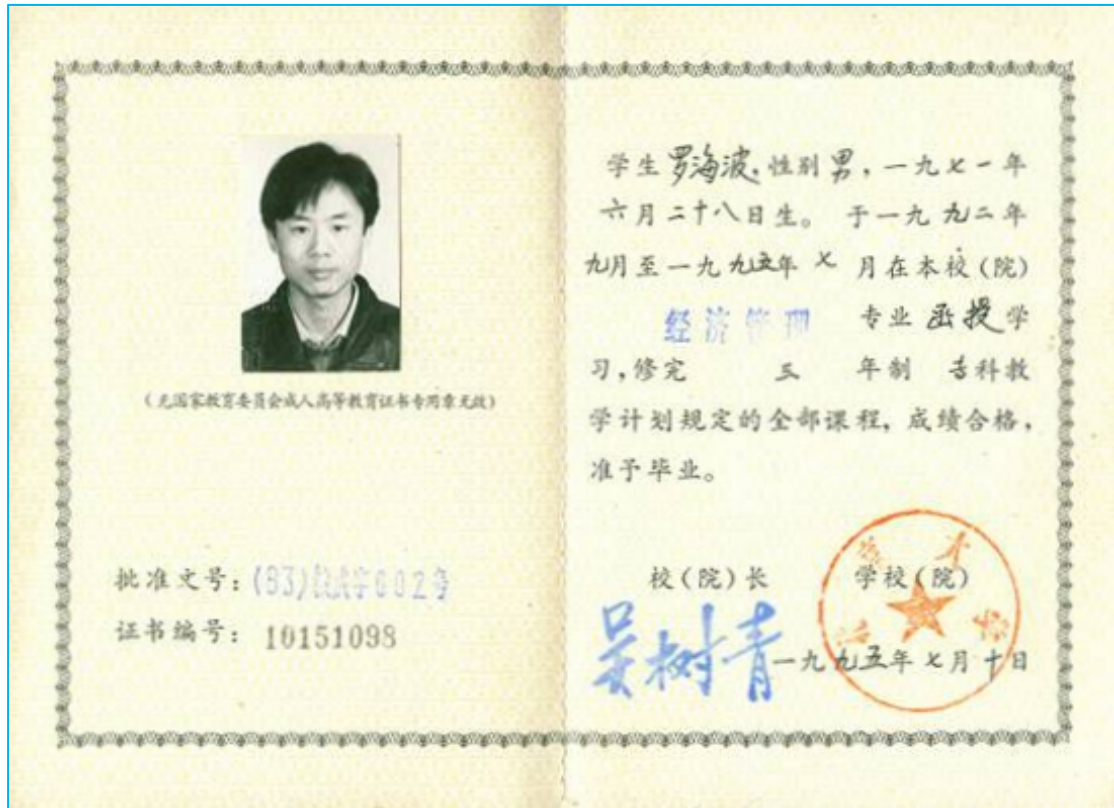 (无国家教育委员会成人高等教育证书专用章无效)
批准文号：(83)教成字002号
证书编号： 10151098
学生罗海波，性别男，一九七一年
六月二十八日生。 于一九九二年
九月至一九九五年七月在本校（院）
经济管理 专业函授学
习，修完 三 年制 专科教
学计划规定的全部课程，成绩合格，
准予毕业。
校（院）长 学校（院）
吴树青
一九九五年七月十日